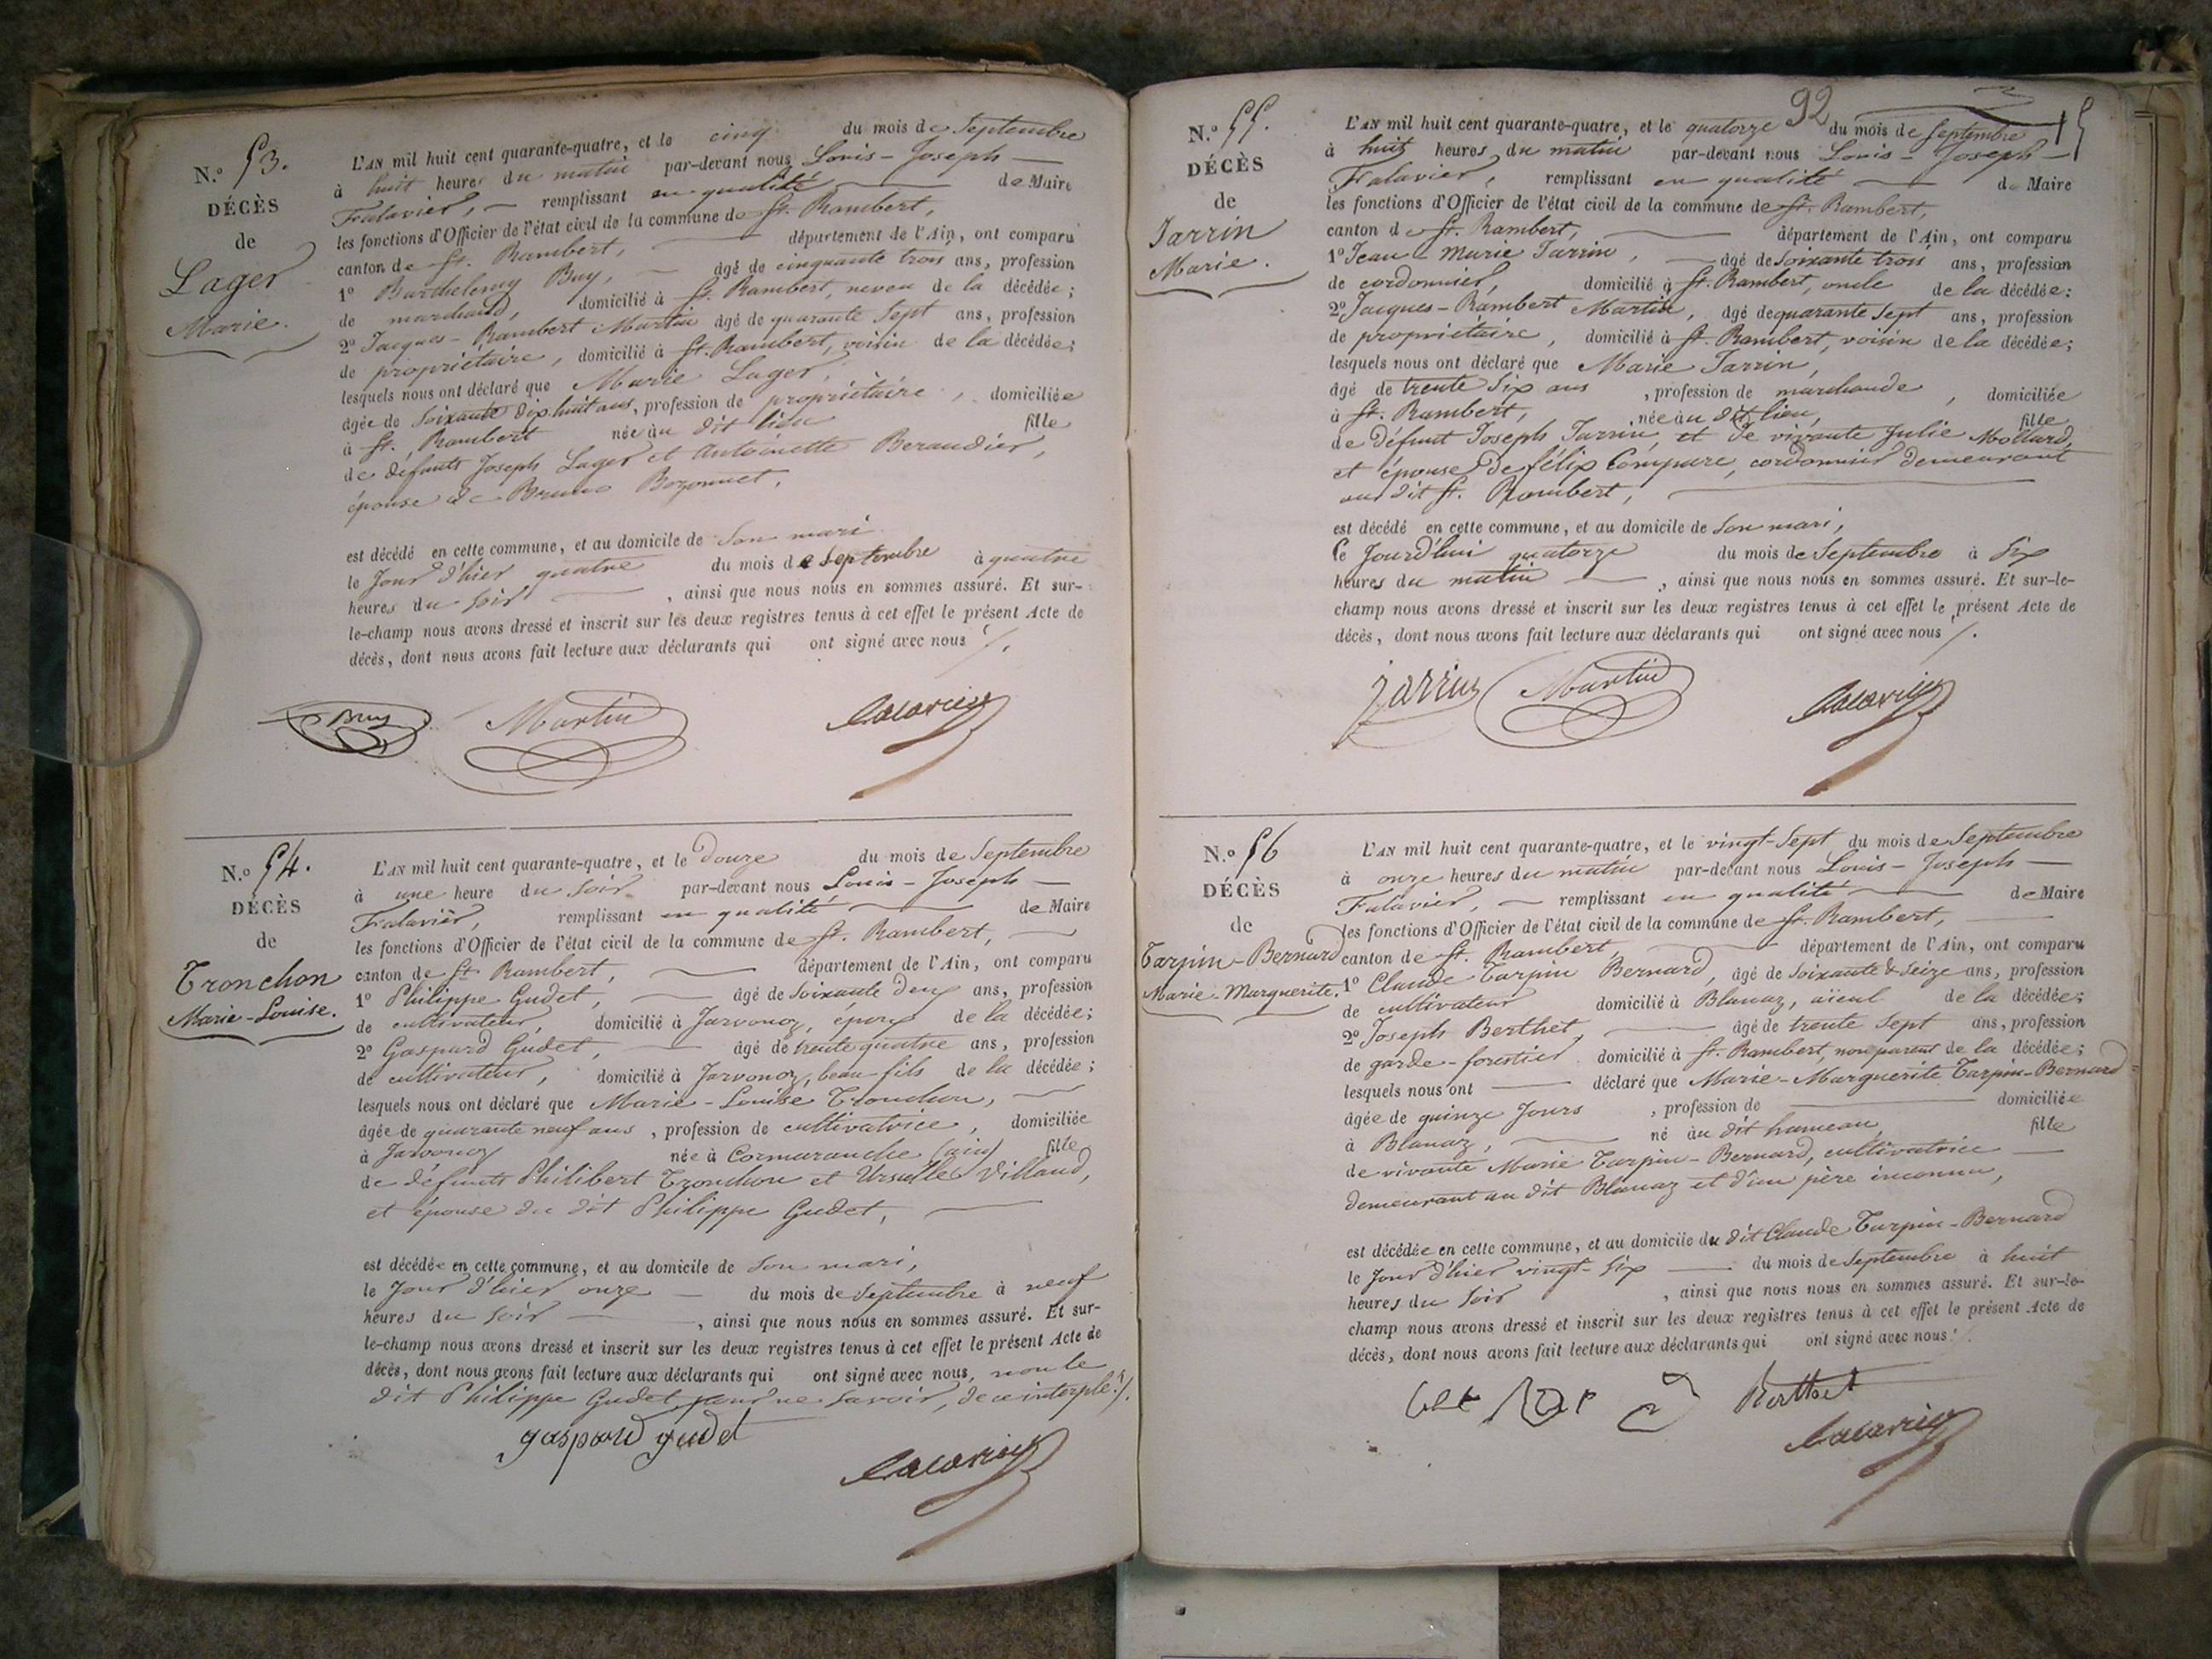 N.° 53.
DÉCÈS
de
Lager
Marie.
L'AN mil huit cent quarante-quatre, et le cinq du mois de Septembre
à huit heures du matin par-devant nous Louis - Joseph
Falavier, remplissant en qualité de Maire
les fonctions d'Officier de l'état civil de la commune de St. Rambert,
canton de St. Rambert, département de l'Ain, ont comparu
1° Barthelemy Buy, âgé de cinquante trois ans, profession
de marchand, domicilié à St. Rambert, neveu de la décédée;
2° Jacques - Rambert Martin âgé de quarante Sept ans, profession
de propriétaire, domicilié à St. Rambert, voisin de la décédée;
lesquels nous ont déclaré que Marie Lager,
âgée de Soixante dix huit ans, profession de propriétaire, domiciliée
à St. Rambert née au dit lieu fille
de défunts Joseph Lager et Antoinette Beraudier,
épouse de Bruno Bozonnet,
est décédé en cette commune, et au domicile de Son mari
le Jour d'hier quatre du mois de Septembre à quatre
heures du Soir, ainsi que nous nous en sommes assuré. Et sur-
le-champ nous avons dressé et inscrit sur les deux registres tenus à cet effet le présent Acte de
décès, dont nous avons fait lecture aux déclarants qui ont signé avec nous
Buy Martin Falavier
N.° 54.
DÉCÈS
de
Tronchon
Marie-Louise.
L'AN mil huit cent quarante-quatre, et le Douze du mois de Septembre
à une heure du Soir par-devant nous Louis - Joseph
Falavier, remplissant en qualité de Maire
les fonctions d'Officier de l'état civil de la commune de St. Rambert,
canton de St. Rambert, département de l'Ain, ont comparu
1° Philippe Gudet, âgé de Soixante deux ans, profession
de cultivateur, domicilié à Javonoz, époux de la décédée;
2° Gaspard Gudet, âgé de trente quatre ans, profession
de cultivateur, domicilié à Javonoz, beau-fils de la décédée;
lesquels nous ont déclaré que Marie - Louise Tronchon,
âgée de quarante neuf ans, profession de cultivatrice, domiciliée
à Javonoz née à Cormaranche (ain) fille
de défunts Philibert Tronchon et Ursulle Villaud,
et épouse du dit Philippe Gudet,
est décédée en cette commune, et au domicile de Son mari,
le Jour d'hier onze du mois de Septembre à neuf
heures du Soir, ainsi que nous nous en sommes assuré. Et sur-
le-champ nous avons dressé et inscrit sur les deux registres tenus à cet effet le présent Acte de
décès, dont nous avons fait lecture aux déclarants qui ont signé avec nous, non le
dit Philippe Gudet pour ne Savoir, de ce interplé
gaspard gudet Falavier
92
N.° 55.
DÉCÈS
de
Jarrin
Marie.
L'AN mil huit cent quarante-quatre, et le quatorze du mois de Septembre
à huit heures du matin par-devant nous Louis - Joseph
Falavier, remplissant en qualité de Maire
les fonctions d'Officier de l'état civil de la commune de St. Rambert,
canton de St. Rambert, département de l'Ain, ont comparu
1° Jean - Marie Jarrin, âgé de Soixante trois ans, profession
de cordonnier, domicilié à St. Rambert, oncle de la décédée;
2° Jacques - Rambert Martin, âgé de quarante Sept ans, profession
de propriétaire, domicilié à St. Rambert, voisin de la décédée;
lesquels nous ont déclaré que Marie Jarrin,
âgé de trente Six ans, profession de marchande, domiciliée
à St. Rambert, née au dit lieu, fille
de défunt Joseph Jarrin, et de vivante Julie Mollard,
et épouse de félix Compare, cordonnier demeurant
au dit St. Rambert,
est décédé en cette commune, et au domicile de Son mari,
Ce Jourd'hui quatorze du mois de Septembre à Six
heures du matin, ainsi que nous nous en sommes assuré. Et sur-le-
champ nous avons dressé et inscrit sur les deux registres tenus à cet effet le présent Acte de
décès, dont nous avons fait lecture aux déclarants qui ont signé avec nous
Jarrin Martin Falavier
N.° 56
DÉCÈS
de
Tarpin - Bernard
Marie - Marguerite.
L'AN mil huit cent quarante-quatre, et le vingt-Sept du mois de Septembre
à onze heures du matin par-devant nous Louis - Joseph
Falavier, remplissant en qualité de Maire
les fonctions d'Officier de l'état civil de la commune de St. Rambert,
canton de St. Rambert, département de l'Ain, ont comparu
1° Claude Tarpin Bernard, âgé de Soixante & Seize ans, profession
de cultivateur domicilié à Blanaz, aïeul de la décédée;
2° Joseph Berthet, âgé de trente Sept ans, profession
de garde - forestier domicilié à St. Rambert, non parent de la décédée;
lesquels nous ont déclaré que Marie - Marguerite Tarpin - Bernard
âgée de quinze Jours, profession de domiciliée
à Blanaz, né au dit hameau, fille
de vivante Marie Tarpin - Bernard, cultivatrice
demeurant au dit Blanaz et d'un père inconnu,
est décédée en cette commune, et au domicile du dit Claude Tarpin - Bernard
le Jour d'hier vingt-Six du mois de Septembre à huit
heures du Soir, ainsi que nous nous en sommes assuré. Et sur-le-
champ nous avons dressé et inscrit sur les deux registres tenus à cet effet le présent Acte de
décès, dont nous avons fait lecture aux déclarants qui ont signé avec nous
Berthet
Falavier